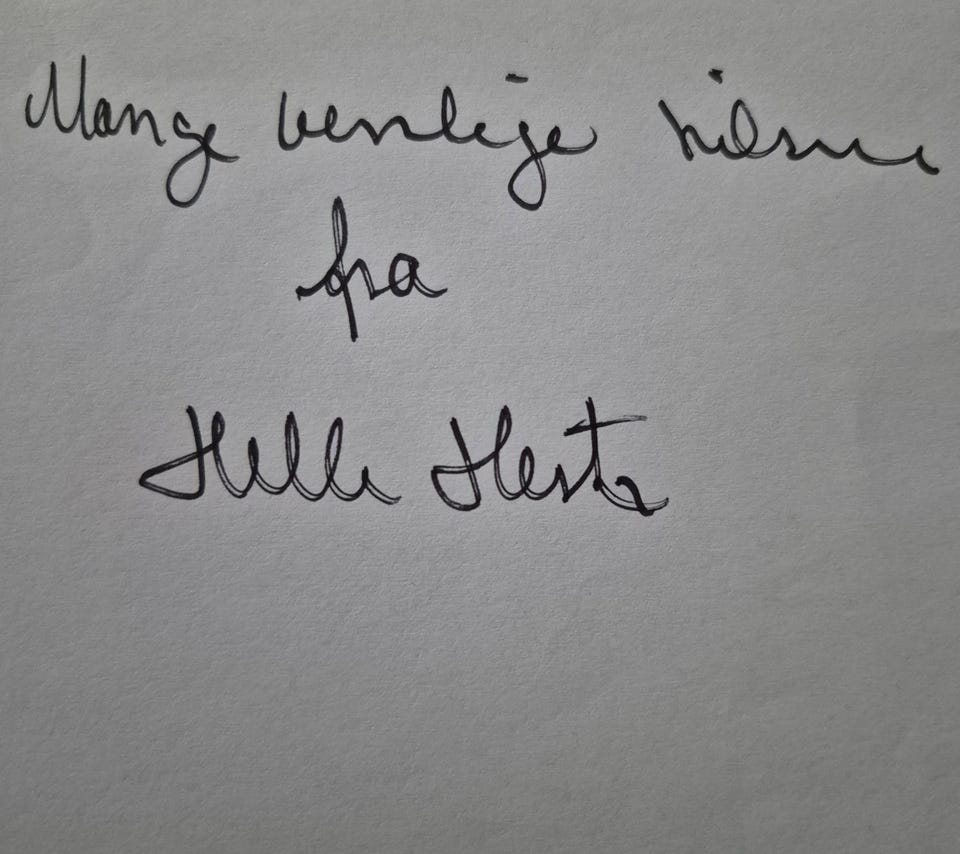 Mange venlige hilsner
fra
Helle Hertz